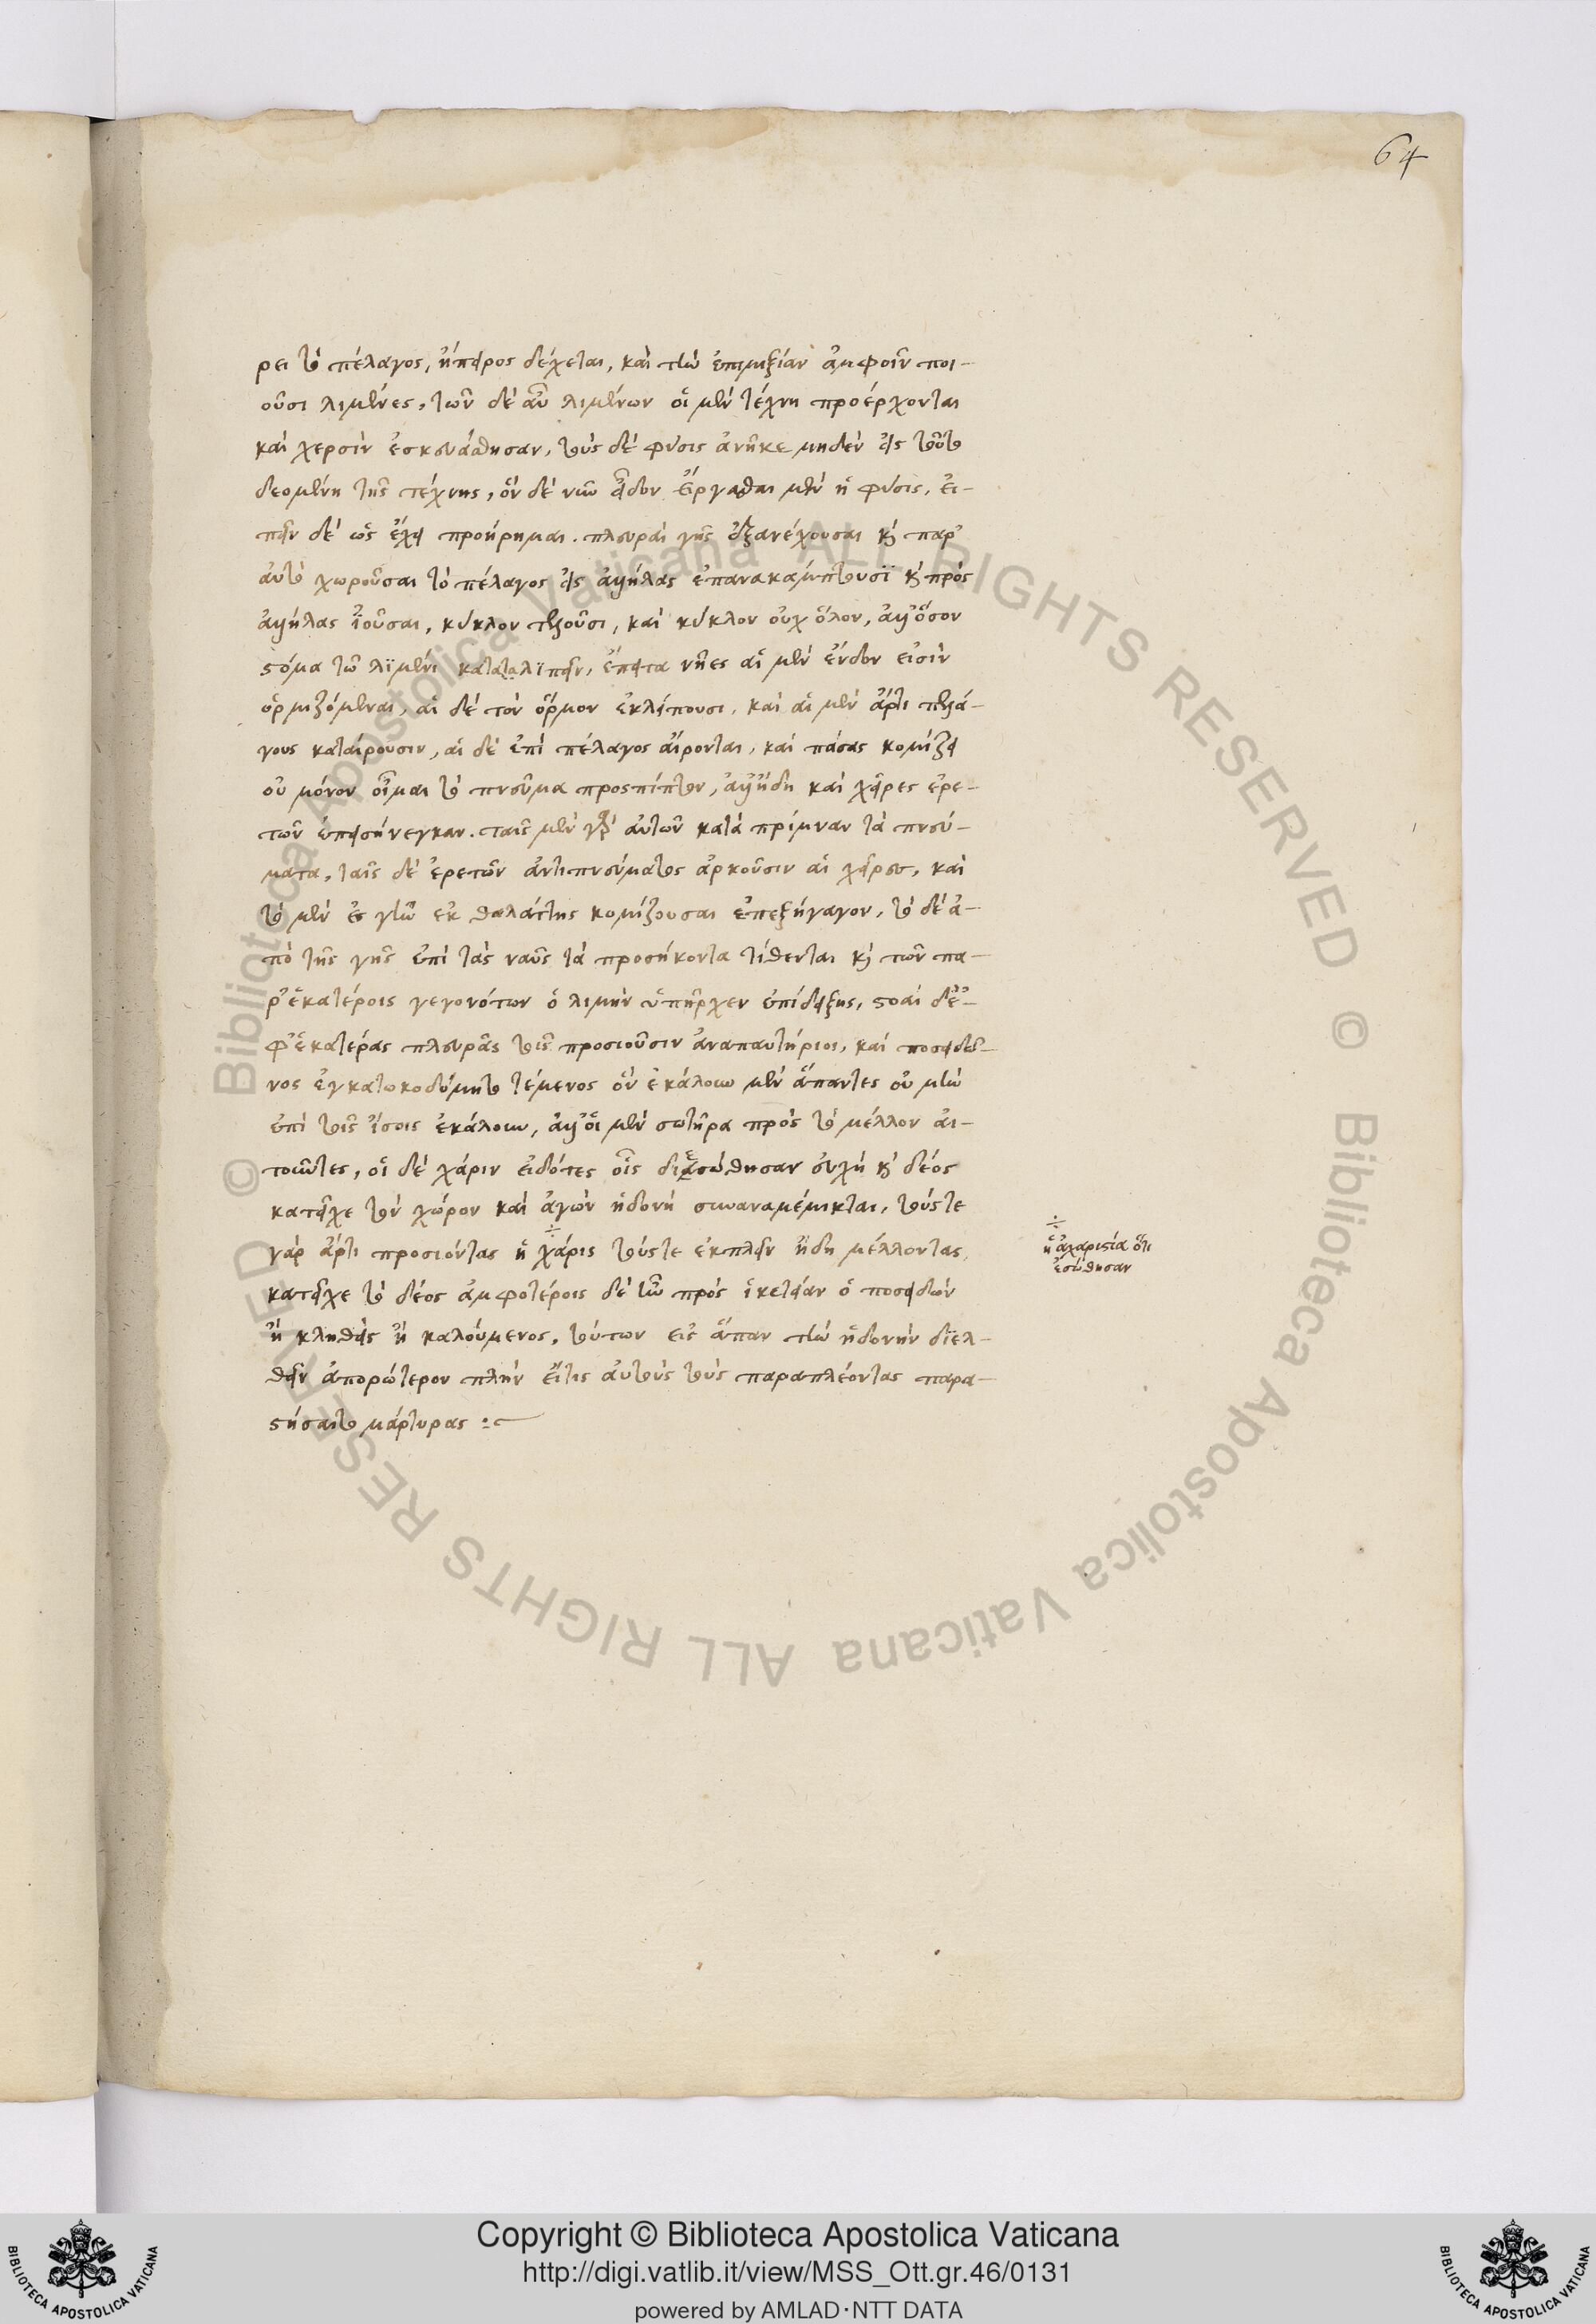 64
ρει τὸ πέλαγος, ἤπειρος δέχεται, καὶ τὴν ἐπιμιξίαν ἀμφοῖν ποι-
οῦσι λιμένες, τῶν δὲ αὖ λιμένων οἱ μὲν τέχνῃ προέρχονται
καὶ χερσὶν ἐσκευάσθησαν, τοὺς δὲ φύσις ἀνῆκε μηδὲν εἰς τοῦτο
δεομένη τῆς τέχνης, ὃν δὲ νῦν εἶδον εἴργασται μὲν ἡ φύσις, εἰ-
πεῖν δὲ ὡς ἔχει προῄρημαι. πλευραὶ γῆς ἐξανέχουσαι καὶ παρ'
αὐτὸ χωροῦσαι τὸ πέλαγος εἰς ἀλλήλας ἐπανακάμπτουσϊ καὶ πρὸς
ἀλλήλας ἰοῦσαι, κύκλον τελοῦσι, καὶ κύκλον οὐχ ὅλον, ἀλλ' ὅσον
στόμα τῷ λϊμένι καταλϊπεῖν, ἔπειτα νῆες αἱ μὲν ἔνδον εἰσὶν
ὁρμιζόμεναι, αἱ δὲ τὸν ὅρμον ἐκλείπουσι, καὶ αἱ μὲν ἄρτι πελά-
γους καταίρουσιν, αἱ δὲ ἐπὶ πέλαγος αἴρονται, καὶ πάσας κομίζει
οὐ μόνον οἶμαι τὸ πνεῦμα προσπίπτον, ἀλλ' ἤδη καὶ χεῖρες ἐρε-
τῶν ἐπεισήνεγκαν. ταῖς μὲν γὰρ αὐτῶν κατὰ πρίμναν τὰ πνεύ-
ματα, ταῖς δὲ ἐρετῶν ἀντιπνεύματος ἀρκοῦσιν αἱ χεῖρες, καὶ
τὸ μὲν ἐς γῆν ἐκ θαλάττης κομίζουσαι ἐπεξήγαγον, τὸ δὲ ἀ-
πὸ τῆς γῆς ἐπὶ τὰς ναῦς τὰ προσήκοντα τίθενται καὶ τῶν πα-
ρ' ἑκατέροις γεγονότων ὁ λιμὴν ὑπῆρχεν ἐπίδειξις, στοαὶ δὲ ἐ-
φ' ἑκατέρας πλευρᾶς τοῖς προσιοῦσιν ἀναπαυτήριοι, καὶ ποσειδῶ-
νος ἐγκατῳκοδόμητο τέμενος ὃν ἐκάλουν μὲν ἅπαντες οὐ μὴν
ἐπὶ τοῖς ἴσοις ἐκάλουν, ἀλλ' οἱ μὲν σωτῆρα πρὸς τὸ μέλλον αἰ-
τοῦντες, οἱ δὲ χάριν εἰδότες οἷς διεσώθησαν εὐχὴ καὶ δέος
κατεῖχε τὸν χῶρον καὶ ἀγὼν ἡδονῇ συναναμέμικται, τούς τε
γὰρ ἄρτι προσιόντας ἡ χάρις τούς τε ἐκπλεῖν ἤδη μέλλοντας,
κατεῖχε τὸ δέος ἀμφοτέροις δὲ ἦν πρὸς ἱκετείαν ὁ ποσειδῶν
ἢ κληθεὶς ἢ καλούμενος, τούτων εἰς ἅπαν τὴν ἡδονὴν δϊελ-
θεῖν ἀπορώτερον πλὴν εἴ τις αὐτοὺς τοὺς παραπλέοντας παρα-
στήσαιτο μάρτυρας :
ἡ ἀχαριστία ὅτι
ἐσώθησαν
Copyright © Biblioteca Apostolica Vaticana
http://digi.vatlib.it/view/MSS_Ott.gr.46/0131
powered by AMLAD·NTT DATA
BIBLIOTECA APOSTOLICA VATICANA
BIBLIOTECA APOSTOLICA VATICANA
© Biblioteca Apostolica Vaticana ALL RIGHTS RESERVED © Biblioteca Apostolica Vaticana ALL RIGHTS RESERVED